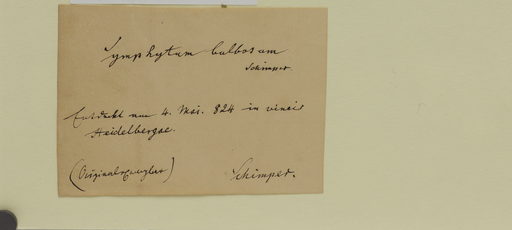 Symphytum bulbosum
Schimper
Entdeckt am 4. Mai. 824 in vineis
Heidelbergae.
(Originalexemplar)
Schimper.